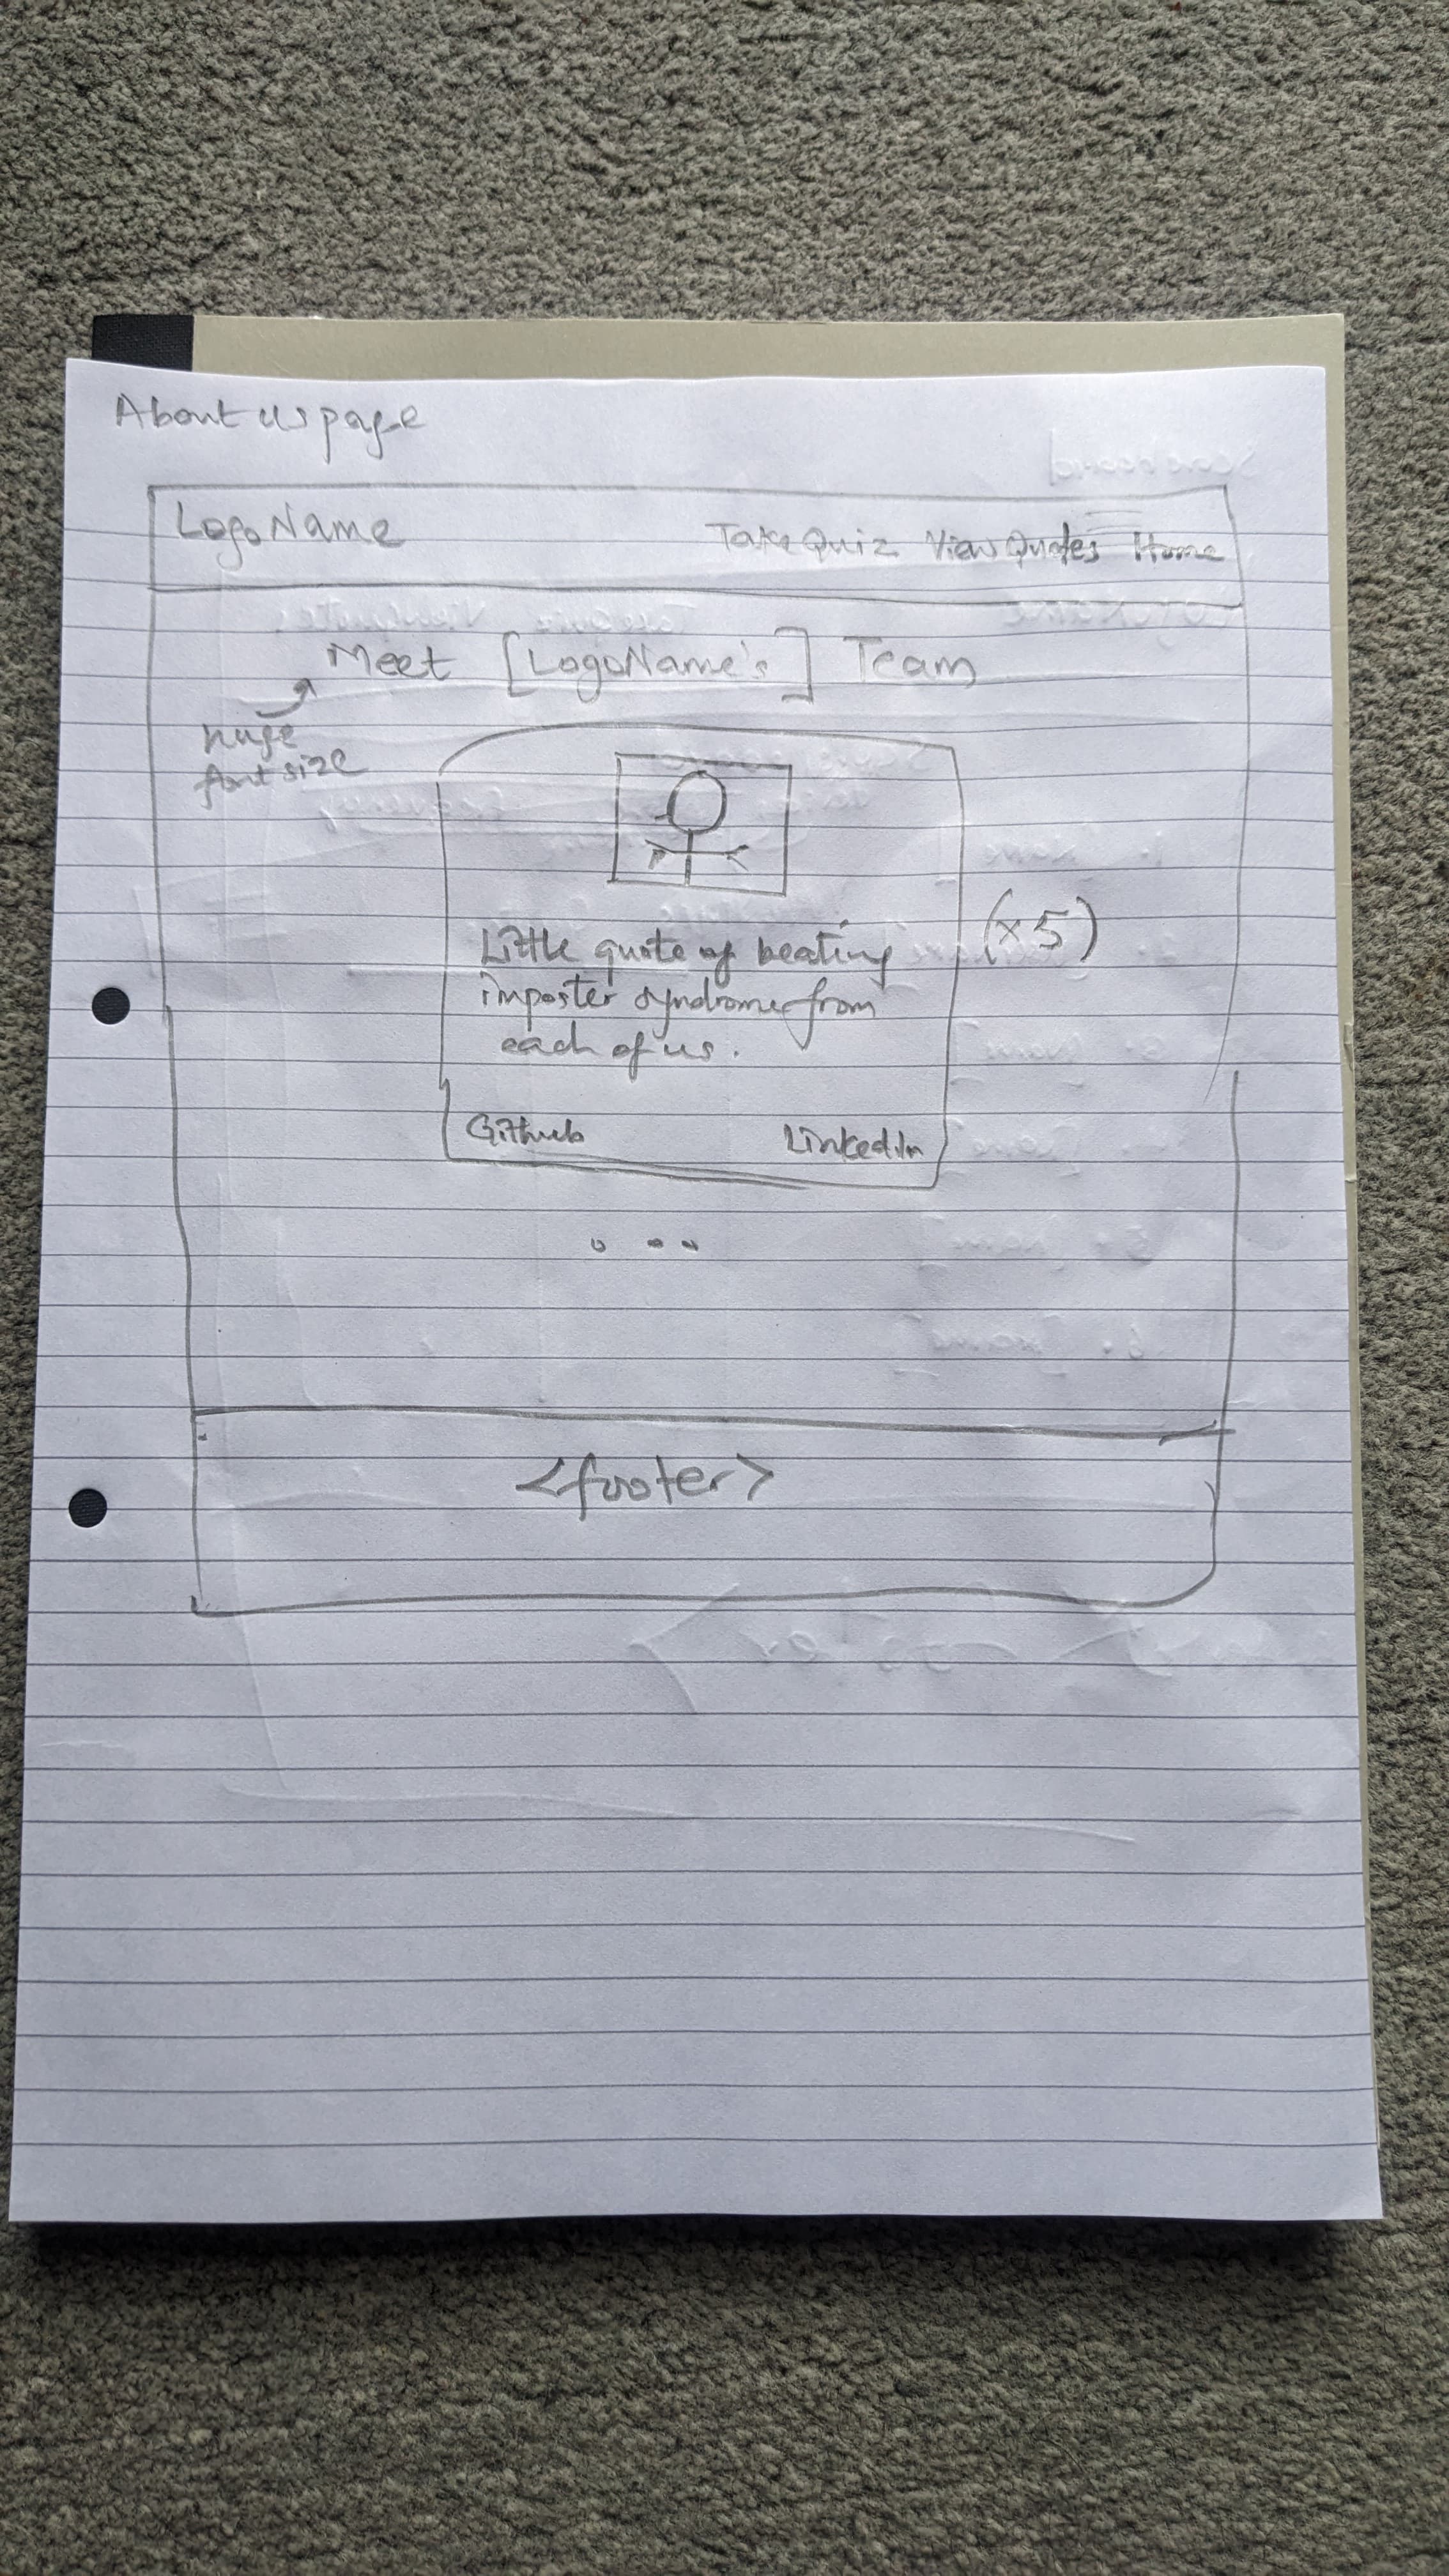 About us page
LogoName
Take Quiz View Quotes Home
Meet [LogoName's] Team
huge
font size
Little quote of beating
imposter syndrome from
each of us.
(x5)
Github
LinkedIn
...
<footer>